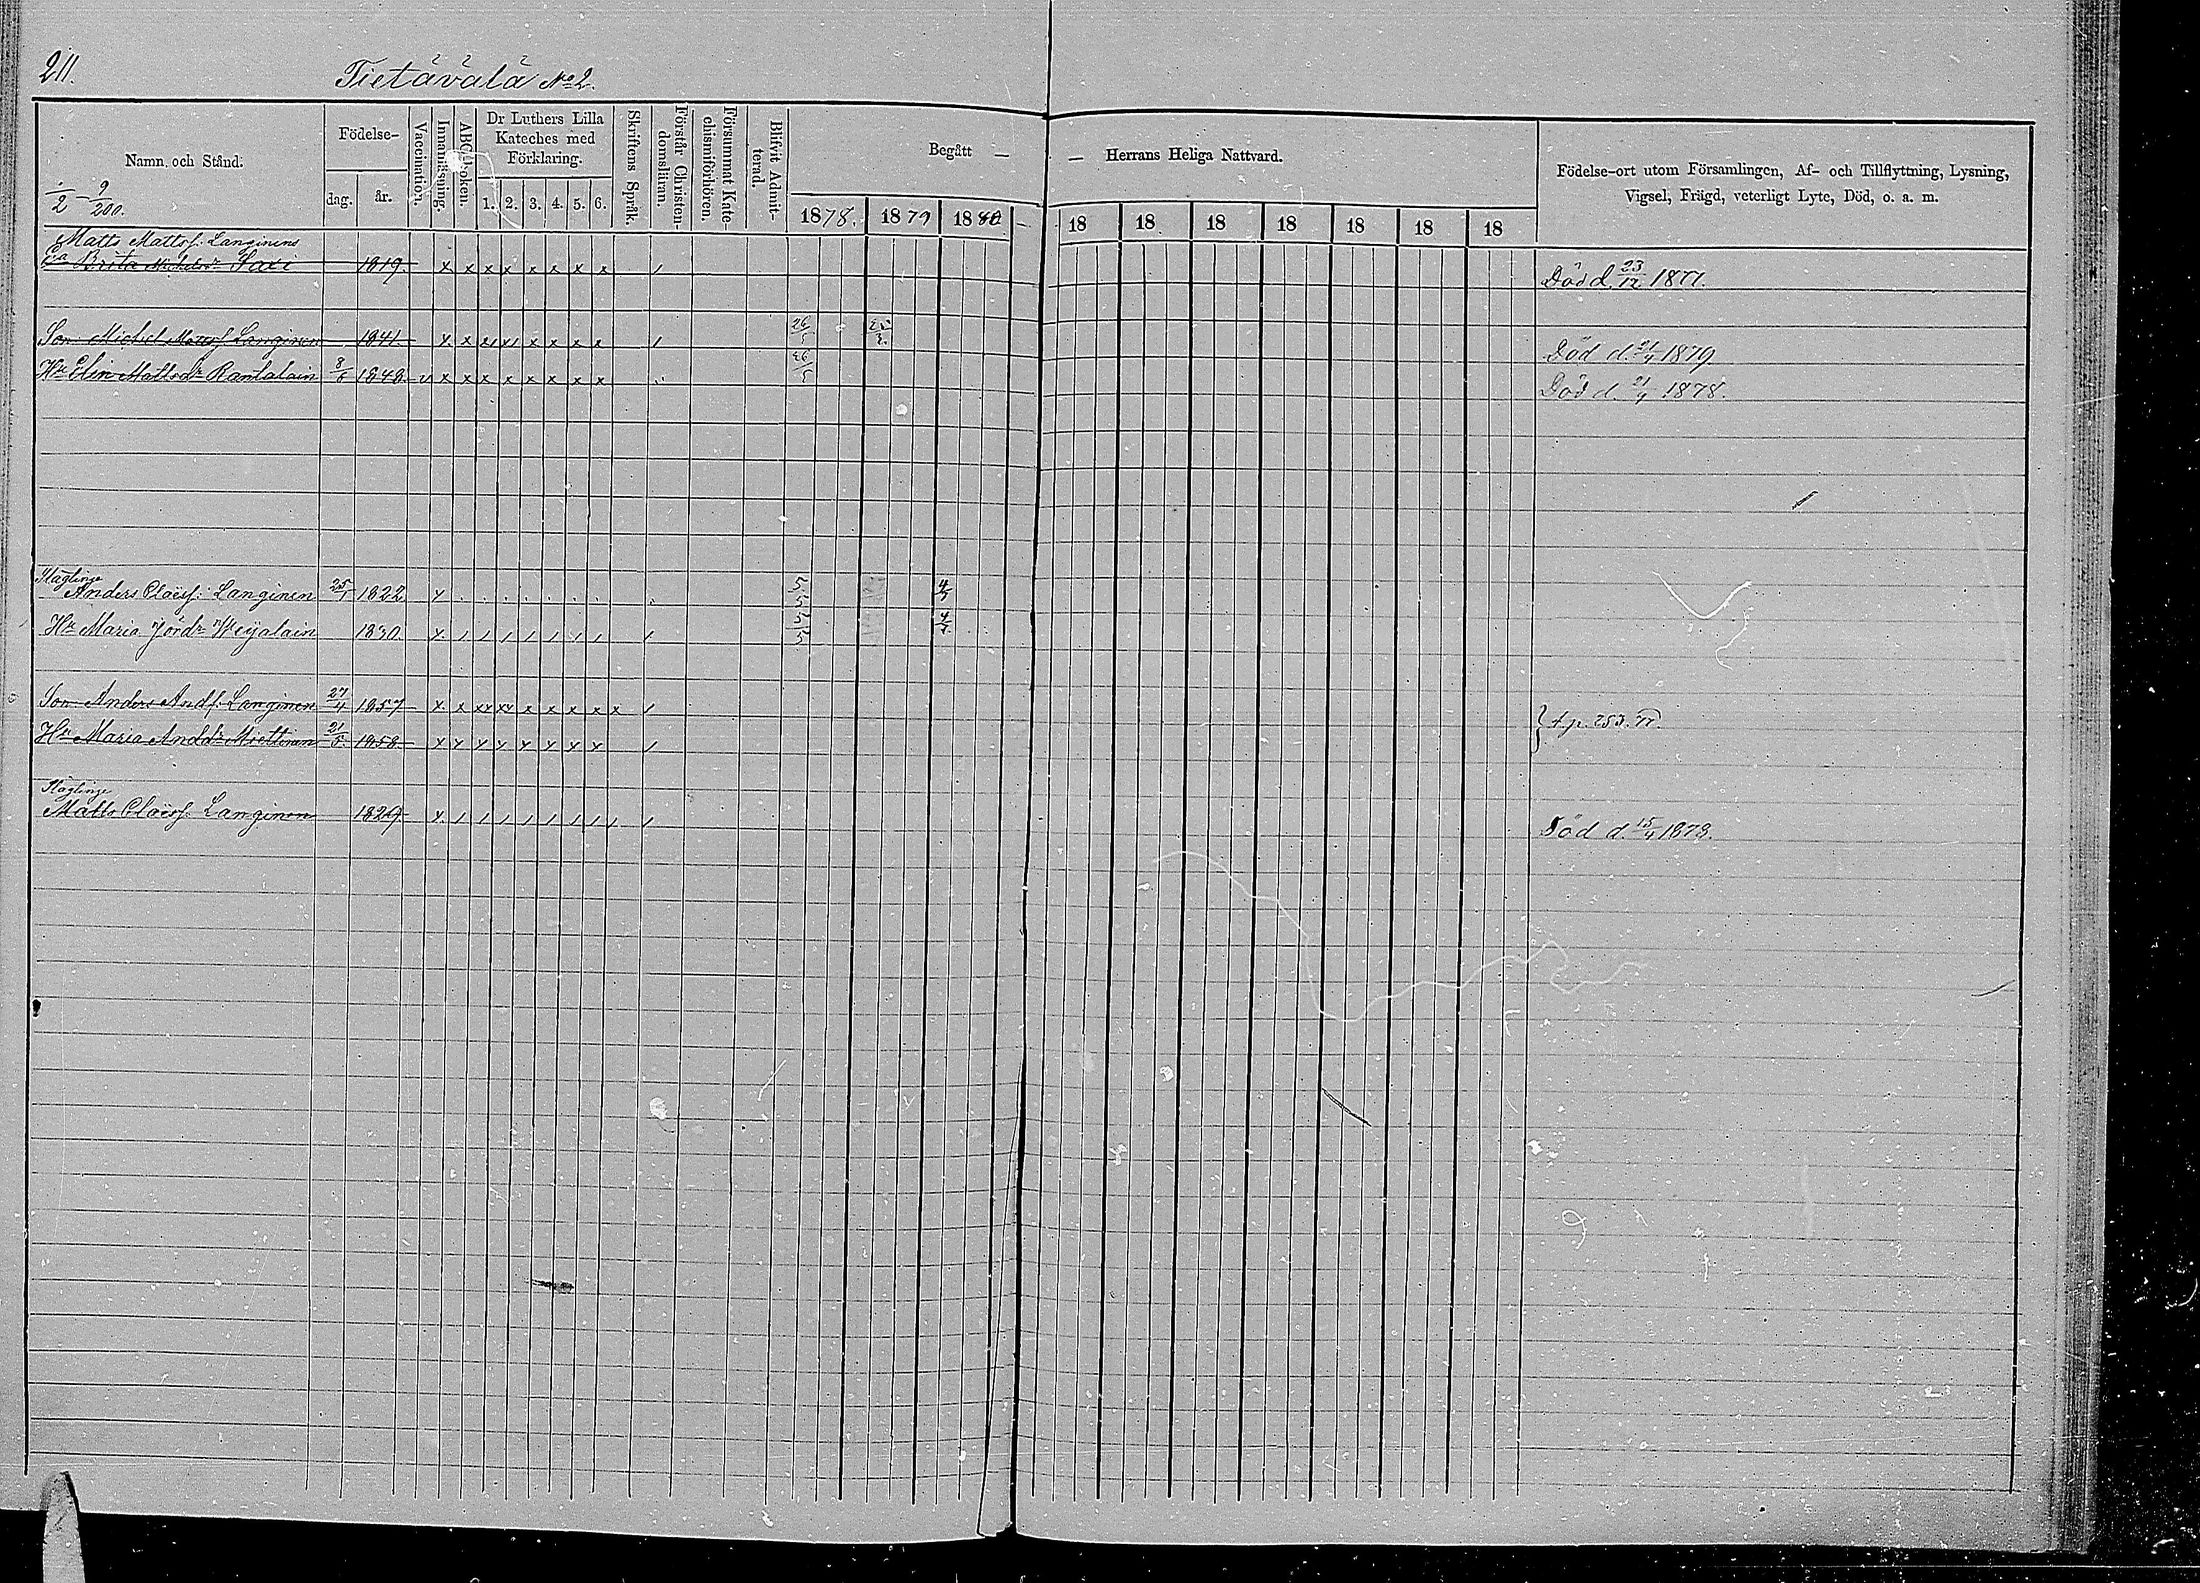 211.
Tietävälä No 2.
Namn och Stånd.
Födelse-
dag.
år.
Vaccination.
Innanläsning.
ABC-Boken.
Dr Luthers Lilla
Kateches med
Förklaring.
1. 2. 3. 4. 5. 6.
Skriftens Språk.
Förstår Christen-
domsläran.
Försummat Kate-
chismiförhören.
Blifvit Admit-
terad.
Begått — — Herrans Heliga Nattvard.
1878. 1879 1880 18 18 18 18 18 18 18
Födelse-ort utom Församlingen, Af- och Tillflyttning, Lysning,
Vigsel, Frägd, veterligt Lyte, Död, o. a. m.
1/2 - 9/200.
Matts Mattsf. Langinens
Ea Brita Michelsdr Saxi 1819. x x x x x x x x / Död d. 23/12 1877.
Son Michel Mattsf Langinen 1841 26/5 Död d. 21/4 1879.
Hu Elin Mattsdr Rantalain 8/6 1848 v x x x x x x x x 26/5 Död d. 21/4 1878.
Anders Claësf. Langinen 25/1 1822 5/5 4/7
Hu Maria Jördr 1830. 5/5 4/7
Son Anders Andf. Langinen 27/4 1857 x x xx xx x x x x x /
Hu Maria Anddr Miettinen 21/5 1858 } t.p. 253.
Matts Claësf. Langinen 1829 Död d. 15/4 1878.